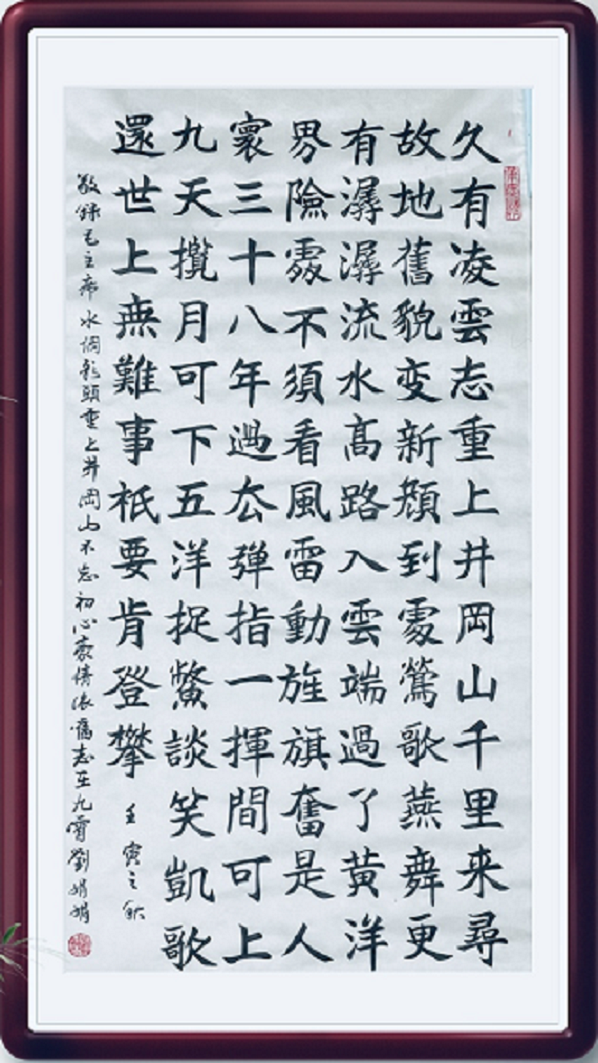 久有凌雲志重上井岡山千里来尋
故地舊貌变新顏到處鶯歌燕舞更
有潺潺流水高路入雲端過了黃洋
界險處不須看風雷動旌旗奮是人
寰三十八年過厺彈指一揮間可上
九天攬月可下五洋捉鱉談笑凱歌
還世上無難事祇要肯登攀 壬寅之秋
敬錄毛主席水调歌頭重上井岡山不忘初心豪情依舊志在九霄劉娟娟